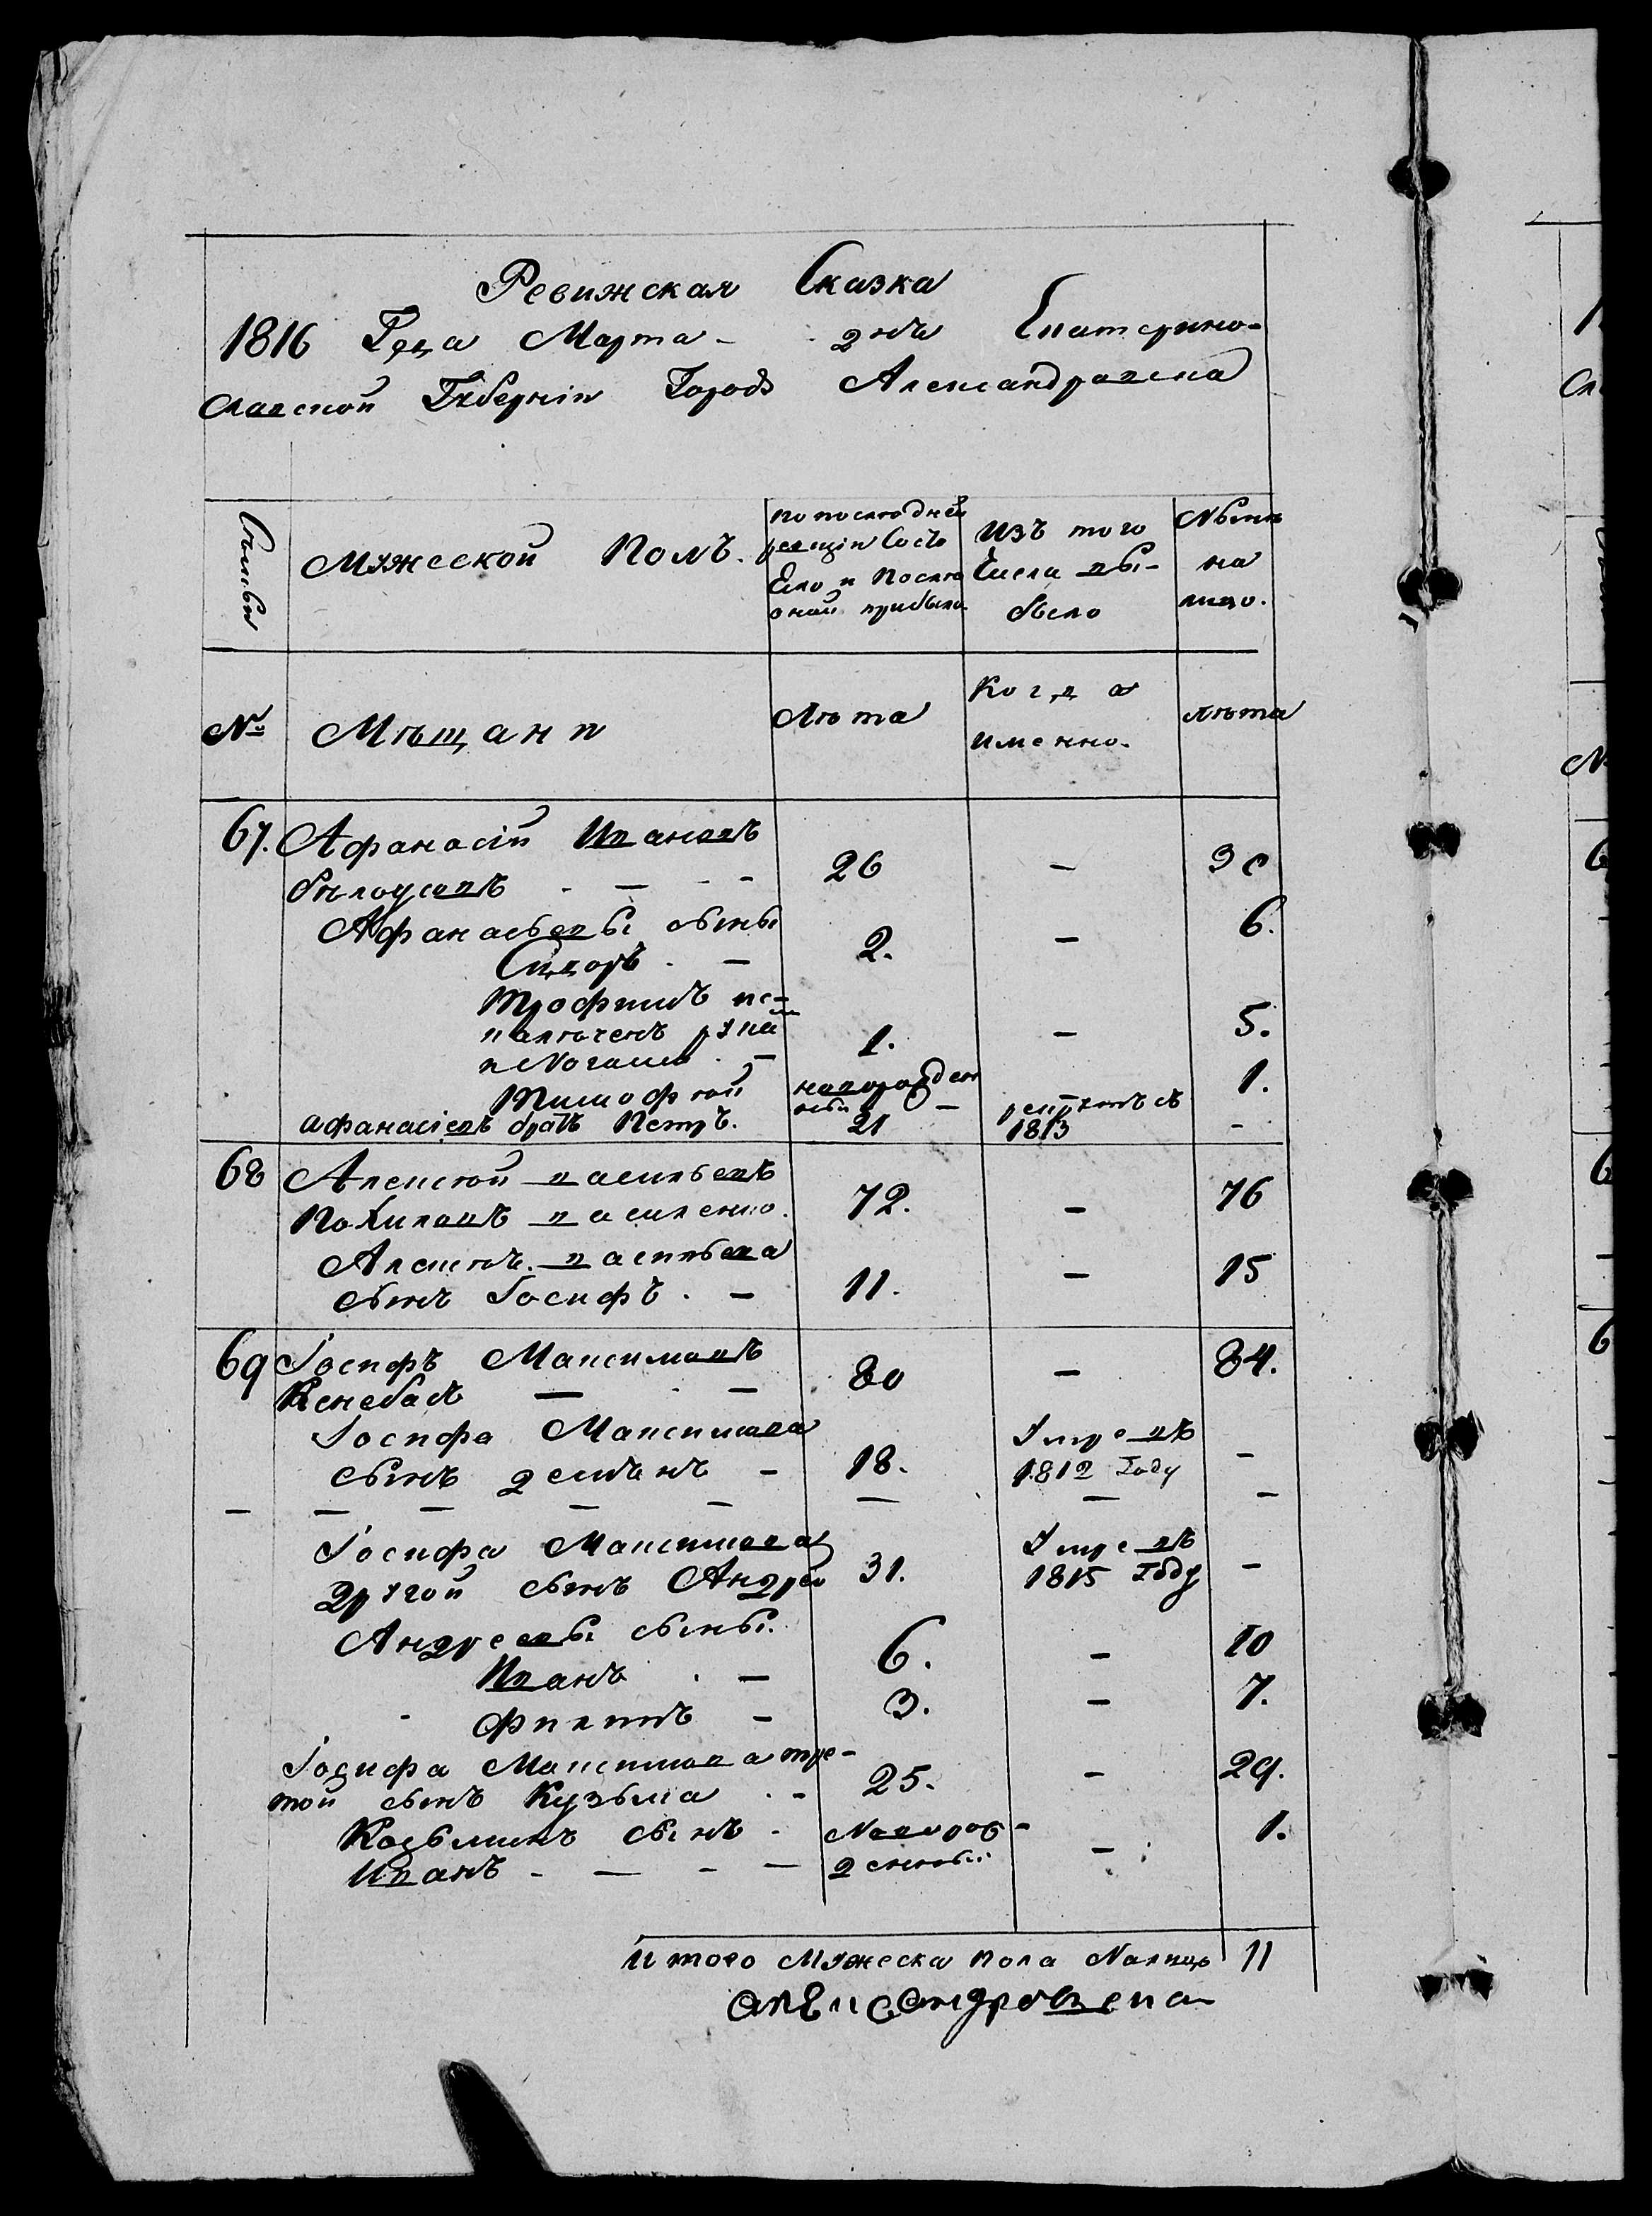 Ревижская Сказка
1816 Года Марта - 2 нъ Екатерино-
славской Губерніи Городъ Александравска
Съмьи
Мужеской Полъ.
по последней
ревизіи Состо
Ело и После
оной прибыло
Изъ того
Числа вы-
было
Нынѣ
на
лицо.
№ Мѣщани Лѣта Когда Лѣта
именно.
67. Афанасій Ивановъ
бѣлоусовъ - - - - 26 - 30
Афанасьевы сыны
Сидоръ. - 2. - 6.
Трофимъ
1. - 5.
Тимофей новорожден 1.
ный - рекрутъ съ
афанасіевъ братъ Петръ. 21 1813 -
68 Алексей васильевъ
72. - 76
Алексея васильева
сынъ Іосифъ. - 11. - 15
69 Іосифъ Максимовъ
Кенебасъ - - - 80 - 84.
Іосифа Максимова Умре въ
сынъ - 18. 1812 Году -
- - - - - - - -
Іосифа Максимова Умре въ
другой сынъ Андрей 31. 1815 Году -
Андреевы сыны.
Иванъ . - 6. - 10
филипъ - 3. - 7.
Іосифа Максимова тре-
той сынъ Кузьма . - 25. - 29.
Козьминъ сынъ - Новорож- 1.
Иванъ - - - - денный -
Итого Мужеска пола Налицо 11
Александровска